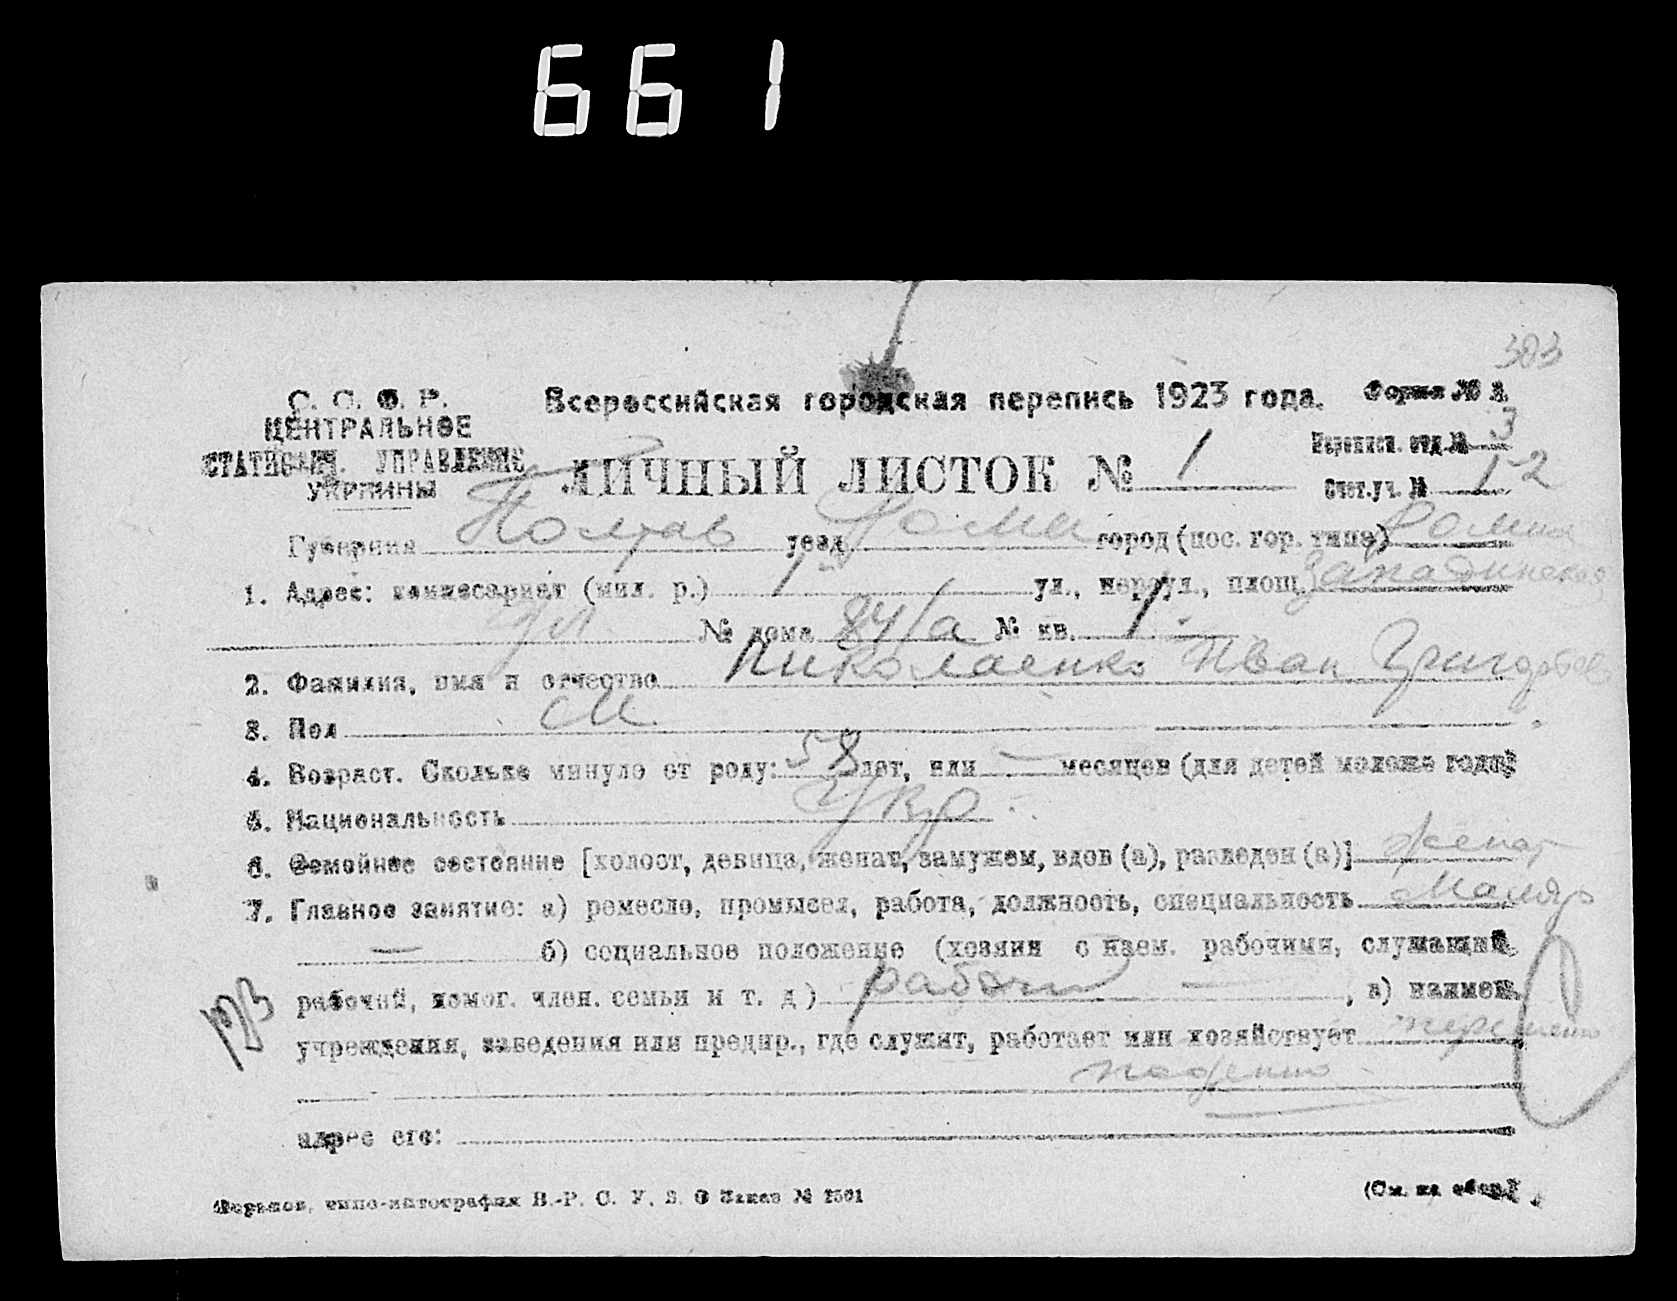 661
303
С. С. Ф. Р.
ЦЕНТРАЛЬНОЕ
СТАТИСТИЧ. УПРАВЛЕНИЕ
УКРАИНЫ
Всероссийская городская перепись 1923 года.
Форма № 2.
Переписн. отд. № 3
ЛИЧНЫЙ ЛИСТОК № 1
Счет. уч. № 1-2
Губерния Полтав уезд Ромен город (пос. гор. типа) Ромны
1. Адрес: комиссариат (мил. р.) 1 ул., переул., площ.
№ дома 84/а № кв. 1.
2. Фамилия, имя и отчество Николаенко Иван Григорьев
3. Пол М.
4. Возраст. Сколько минуло от роду: 58 лет, или — месяцев (для детей моложе года)
5. Национальность Укр.
6. Семейное состояние [холост, девица, женат, замужем, вдов (а), разведен (а)] женат
7. Главное занятие: а) ремесло, промысел, работа, должность, специальность Маляр
— б) социальное положение (хозяин с наем. рабочими, служащий,
рабочий, помог. член. семьи и т. д.) рабочий — , в) наимен.
учреждения, заведения или предпр., где служит, работает или хозяйствует
поденно
адрес его:
Харьков, типо-литография В.-Р. С. У. В. О Заказ № 1501
(См. на обор.)